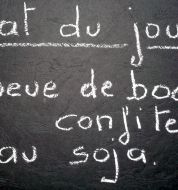 at du jou
ueue de boe
confite
au soja.